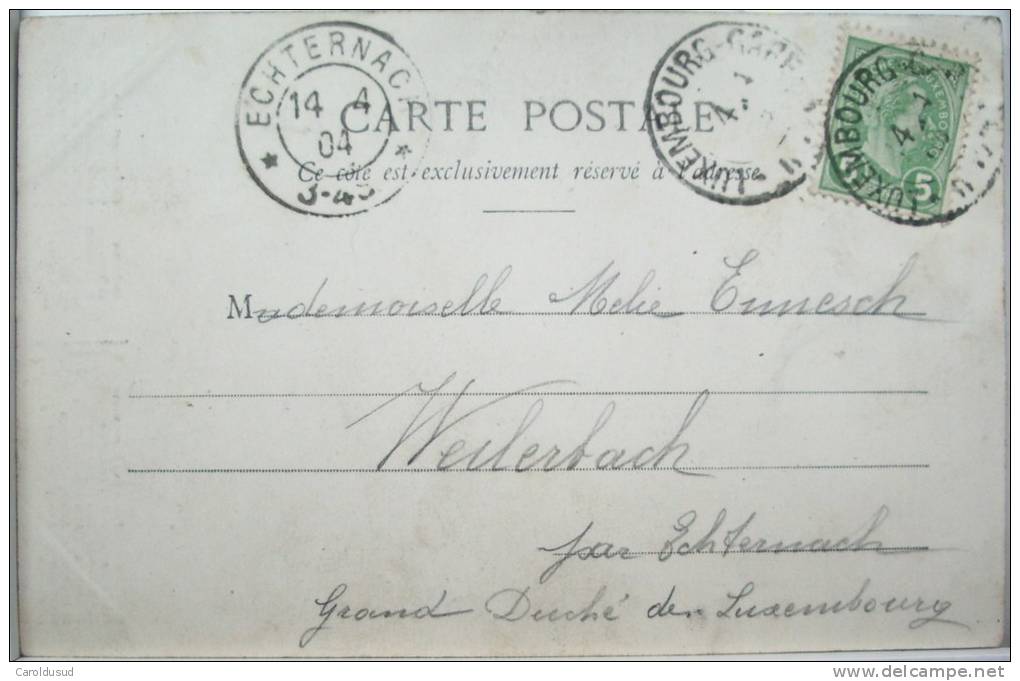 ECHTERNACH
14 4
04
3-4S
LUXEMBOURG-GARE
4
LUXEMBOURG-G
4
5
CARTE POSTALE
Ce côté est exclusivement réservé à l'adresse
Mademoiselle Melie Ennesch
Weilerbach
par Echternach
Grand Duché de Luxembourg
Caroldusud
delcampe.net